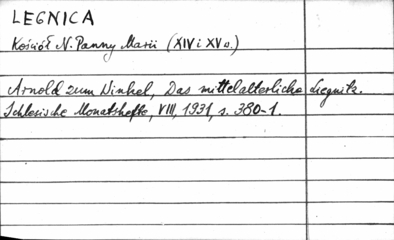 LEGNICA
Kościół N. Panny Marii (XIV i XV w.)
Arnold zum Winkel, Das mittelalterliche Liegnitz.
Schlesische Monatshefte, VIII, 1931, s. 380-1.